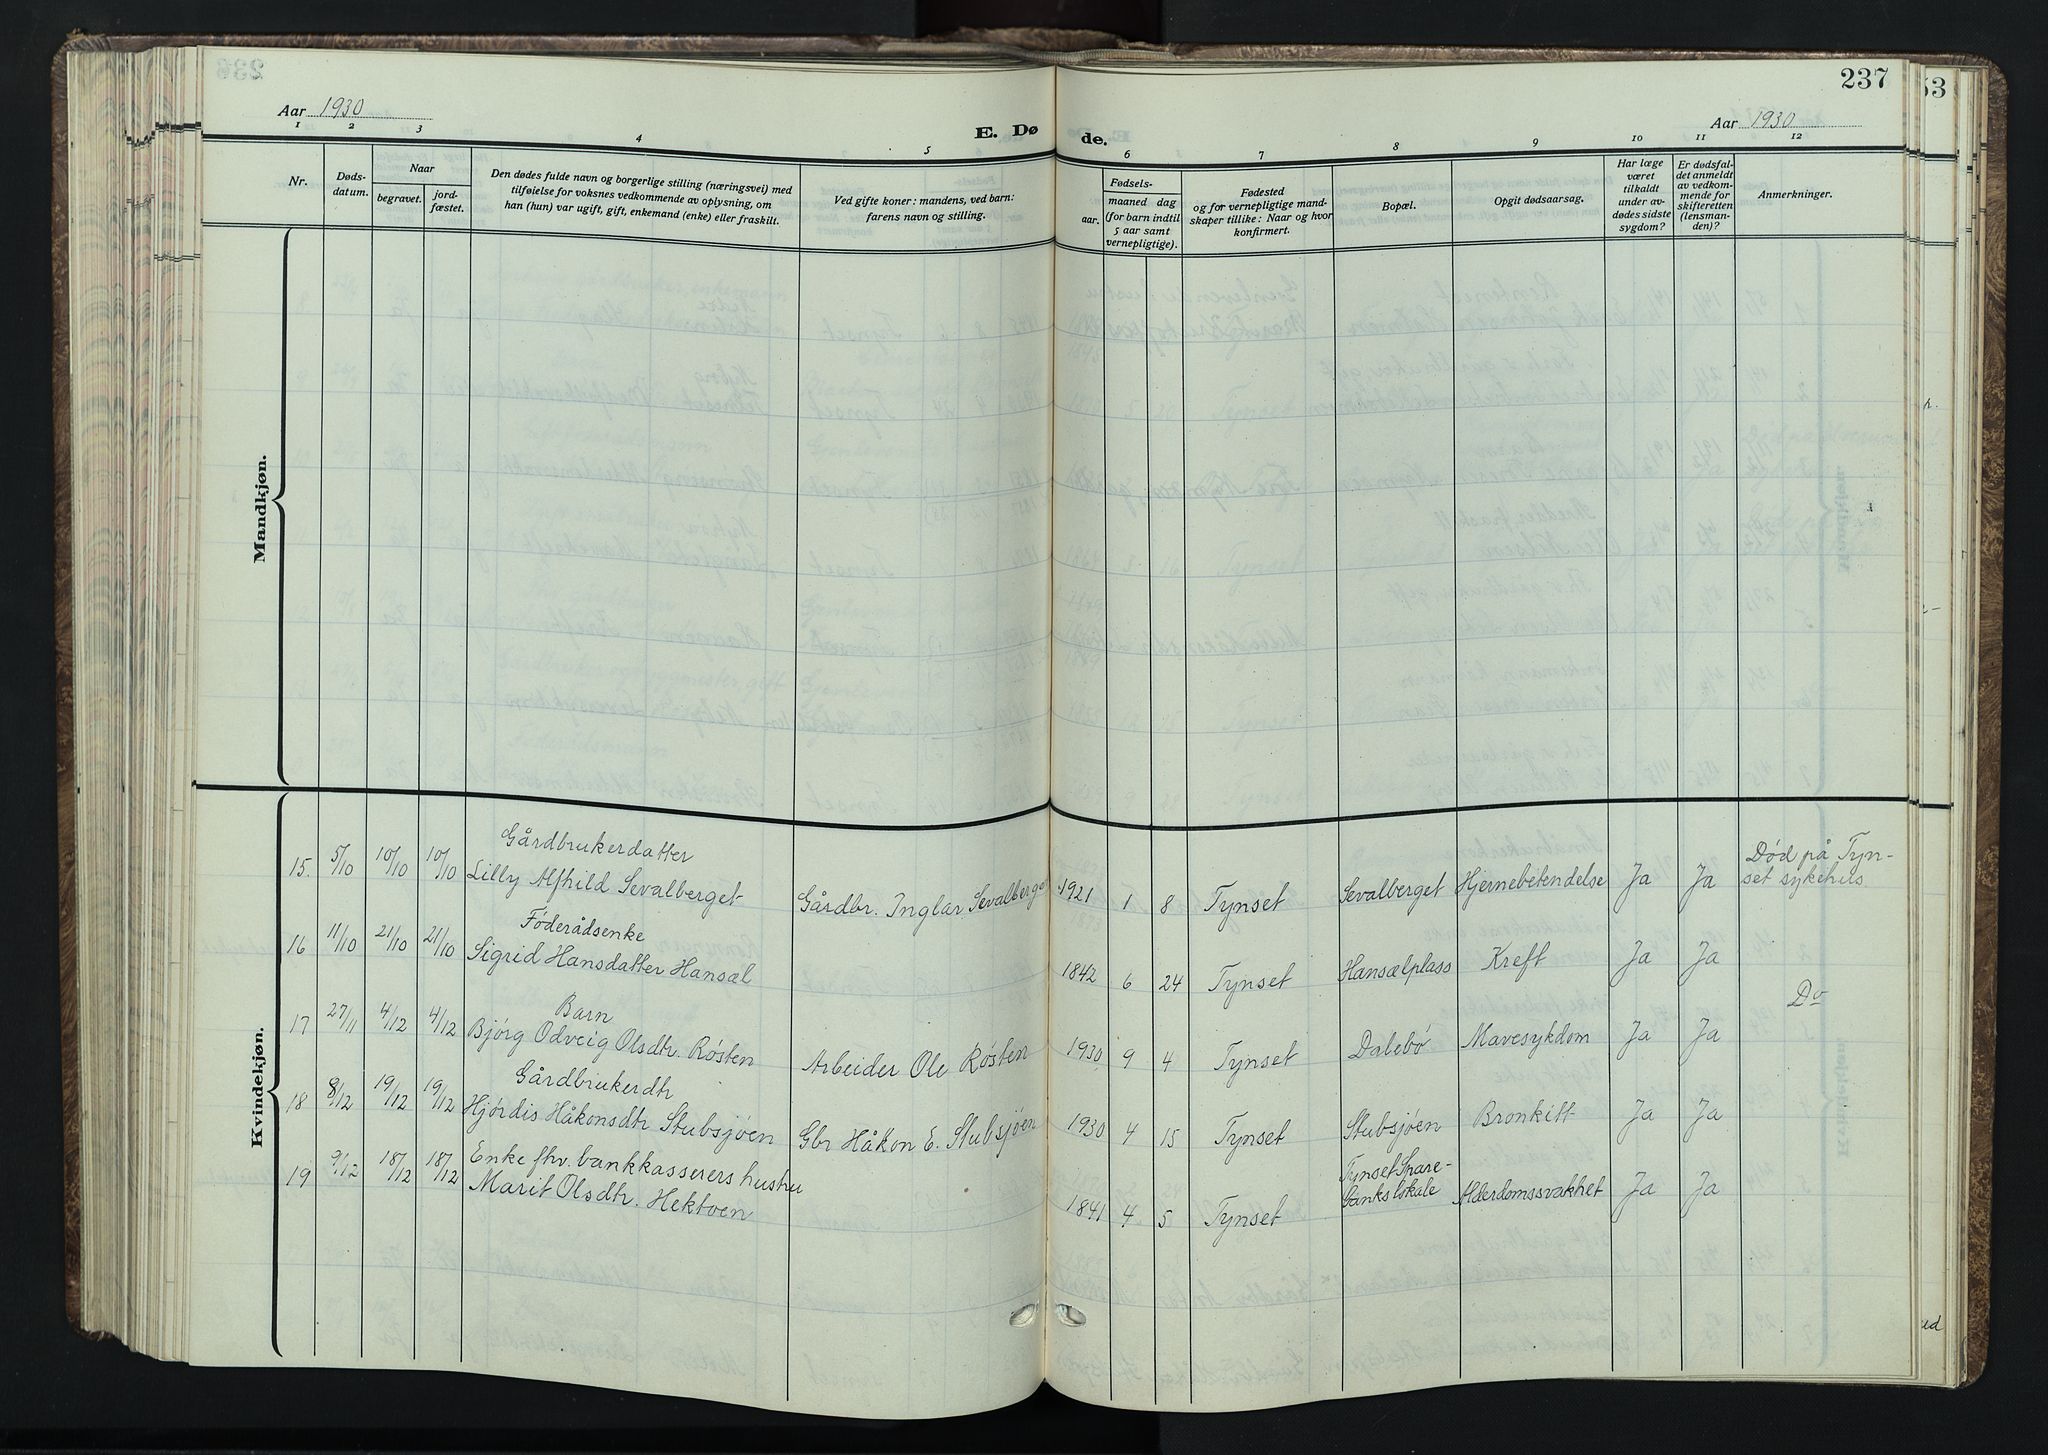 237
53
Aar 1930
Aar 1930
E. Dø
de.
1 2 3 4 5 6 7 8 9 10 11 12
Nr.
Døds-
datum.
Naar
begravet.
jord-
fæstet.
Den dødes fulde navn og borgerlige stilling (næringsvei) med
tilføielse for voksnes vedkommende av oplysning, om
han (hun) var ugift, gift, enkemand (enke) eller fraskilt.
Ved gifte koner: mandens, ved barn:
farens navn og stilling.
Fødsels-
aar.
maaned dag
(for barn indtil
5 aar samt
vernepligtige).
Fødested
og for vernepligtige mand-
skaper tillike: Naar og hvor
konfirmert.
Bopæl.
Opgit dødsaarsag.
Har læge
været
tilkaldt
under av-
dødes sidste
sygdom?
Er dødsfal-
det anmeldt
av vedkom-
mende for
skifteretten
(lensman-
den)?
Anmerkninger.
Mandkjøn.
Kvindekjøn.
Gårdbrukerdatter
15. 5/10 10/10 10/10 Lilly Alfhild Sevalberget Gårdbr. Inglar Sevalberget 1921 1 8 Tynset Sevalberget Hjernebetendelse Ja Ja Død på Tyn-
set sykehus
Føderådsenke
16 11/10 21/10 21/10 Sigrid Hansdatter Hansæl 1842 6 24 Tynset Hansælplass Kreft Ja Ja
Do
Barn
17 27/11 4/12 4/12 Bjørg Odveig Olsdtr. Røsten Arbeider Ole Røsten 1930 9 4 Tynset Dalebø Mavesykdom Ja Ja
Gårdbrukerdtr
18 8/12 19/12 19/12 Hjørdis Håkonsdtr Stubsjøen Gbr Håkon E. Stubsjøen 1930 4 15 Tynset Stubsjøen Bronkitt Ja Ja
Enke fhv. bankkasserers hustru Tynset Spare-
19 9/12 18/12 18/12 Marit Olsdtr. Hektoen 1841 4 5 Tynset banks lokale Alderdomssvakhet Ja Ja